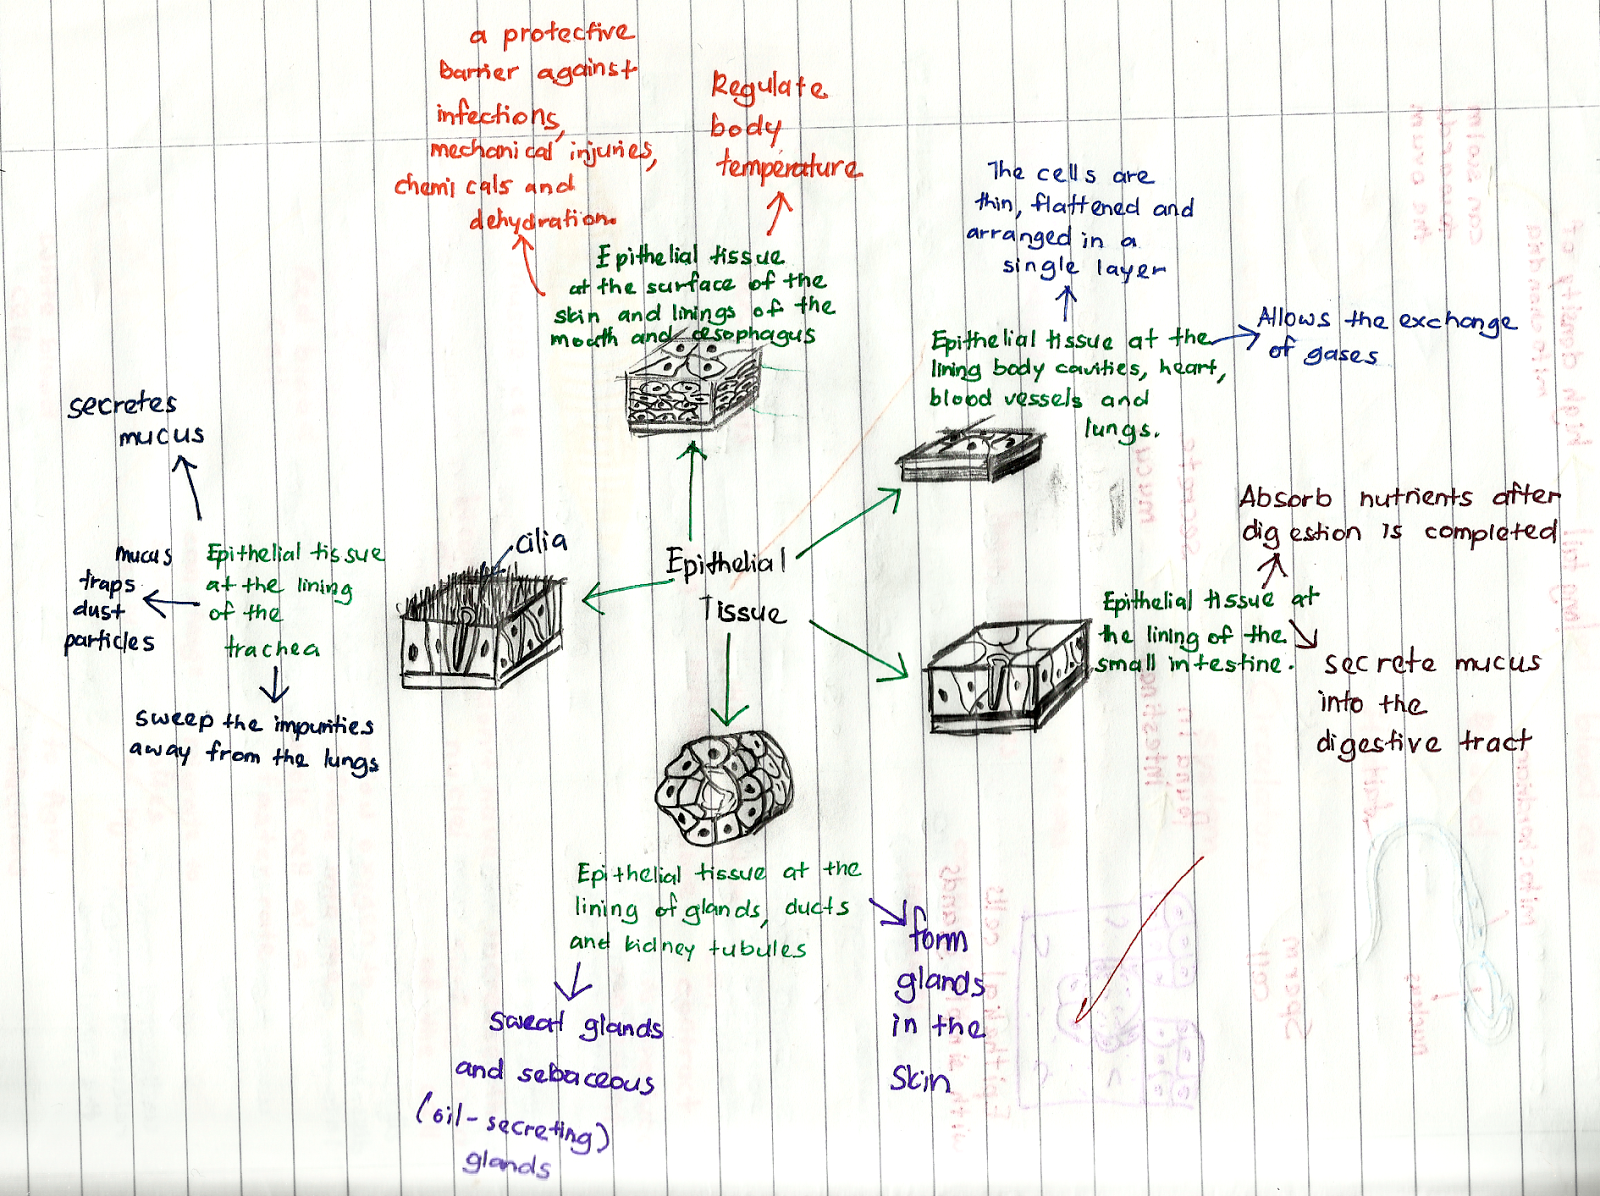 a protective
barrier against
infections,
mechanical injuries,
chemicals and
dehydration.
Regulate
body
temperature
Epithelial tissue
at the surface of the
skin and linings of the
mouth and oesophagus
The cells are
thin, flattened and
arranged in a
single layer
Epithelial tissue at the
lining body cavities, heart,
blood vessels and
lungs.
Allows the exchange
of gases
secretes
mucus
mucus
traps
dust
particles
Epithelial tissue
at the lining
of the
trachea
sweep the impurities
away from the lungs
cilia
Epithelial
Tissue
Absorb nutrients after
digestion is completed
Epithelial tissue at
the lining of the
small intestine.
secrete mucus
into the
digestive tract
Epithelial tissue at the
lining of glands, ducts
and kidney tubules
form
glands
in the
skin
sweat glands
and sebaceous
(oil-secreting)
glands